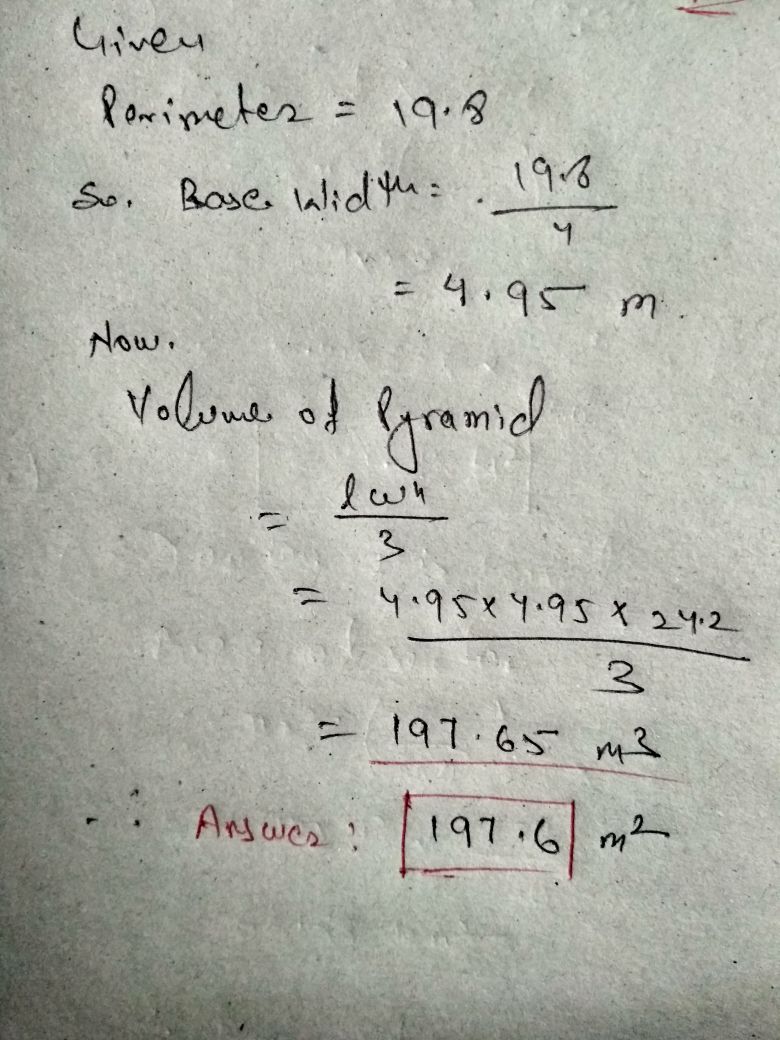 Given
Perimeter = 19.8
So, Base Width = 19.8/4
= 4.95 m.
Now.
Volume of Pyramid
= lwh/3
= 4.95 x 4.95 x 24.2/3
= 197.65 m³
∴ Answer : 197.6 m²